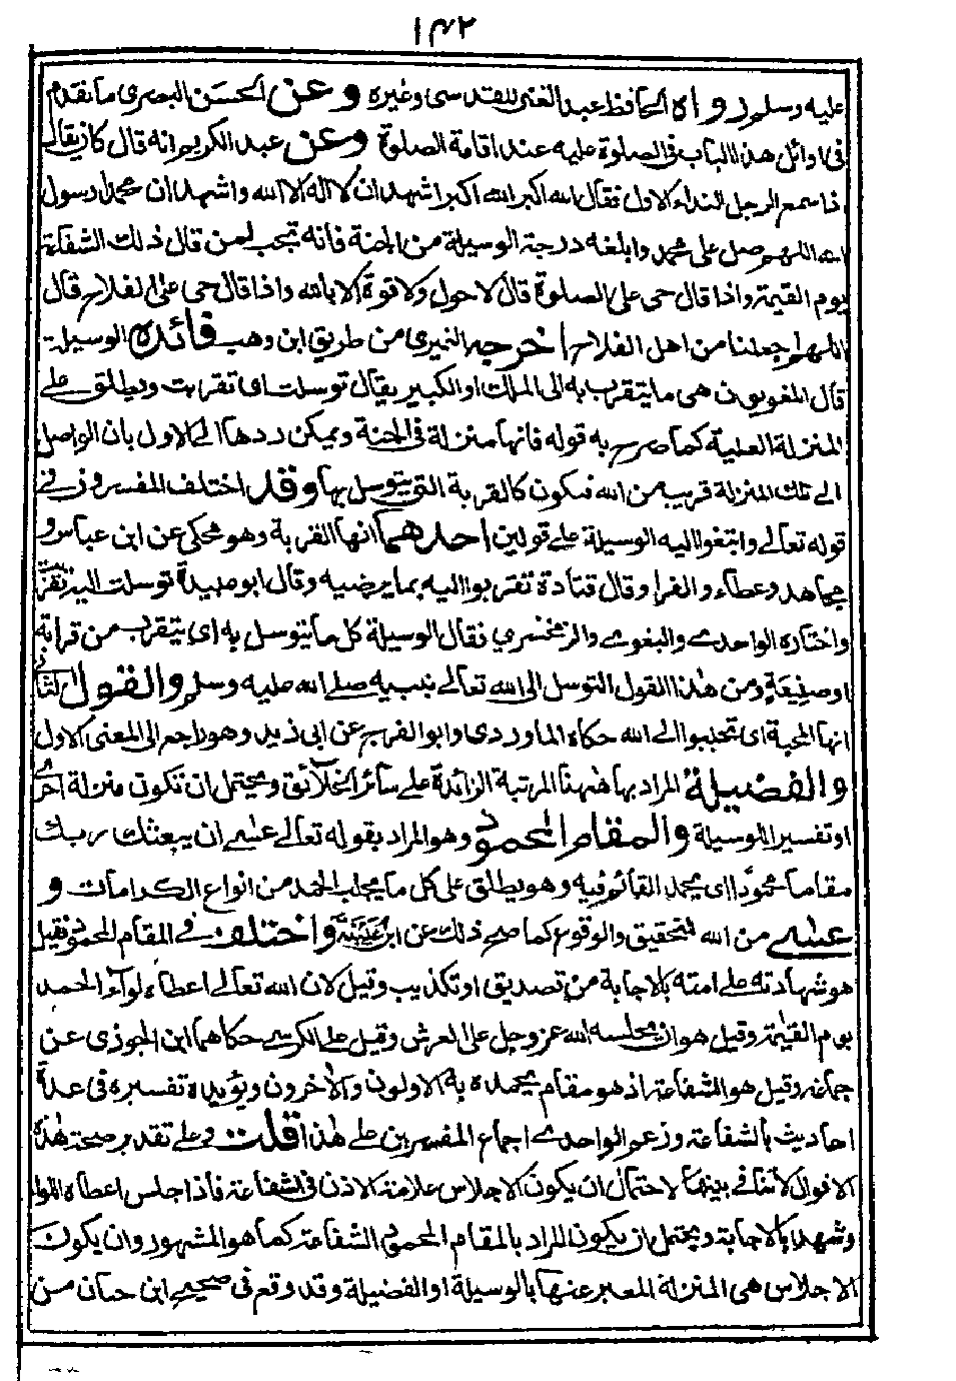 ١٤٢
عليه وسلم رواه الحافظ عبد الغنى المقدسى وغيره وعن الحسن البصرى ما تقدم
فى اوائل هذا الباب فى الصلوة عليه عند اقامة الصلوة وعن عبد الكريم انه قال كان يقال
اذا سمع الرجل النداء الاول فقال الله اكبر الله اكبر اشهد ان لا اله الا الله واشهد ان محمدا رسول
الله اللهم صل على محمد وابلغه درجة الوسيلة من الجنة فانه تجب لمن قال ذلك الشفاعة
يوم القيمة واذا قال حى على الصلوة قال لا حول ولا قوة الا بالله واذا قال حى على الفلاح قال
اللهم اجعلنا من اهل الفلاح اخرجه النميرى من طريق ابن وهب فائدة الوسيلة
قال اللغويون هى ما يتقرب به الى الملك او الكبير يقال توسلت اى تقربت ويطلق على
المنزلة العلية كما صرح به قوله فانها منزلة فى الجنة ويمكن ردها الى الاول بان الواصل
الى تلك المنزلة قريب من الله فتكون كالقربة التى يتوسل بها وقد اختلف المفسرون فى
قوله تعالى وابتغوا اليه الوسيلة على قولين احدهما انها القربة وهو محكى عن ابن عباس و
مجاهد وعطاء والفرا وقال قتادة تقربوا اليه بما يرضيه وقال ابو عبيدة توسلت اليه تقربت
واختاره الواحدى والبغوى والزمخشري فقال الوسيلة كل ما يتوسل به اى يتقرب من قرابة
او صنيعة ومن هذا القول التوسل الى الله تعالى بنبيه صلى الله عليه وسلم والقول الثانى
انها المحبة اى تحببوا الى الله حكاه الماوردى وابو الفرج عن ابى زيد وهو راجع الى المعنى الاول
والفضيلة المراد بها ههنا المرتبة الزائدة على سائر الخلائق ويحتمل ان تكون منزلة اخرى
او تفسير الوسيلة والمقام المحمود وهو المراد بقوله تعالى عسى ان يبعثك ربك
مقاما محمودا اى يحمد القائم فيه وهو يطلق على كل ما يجلب الحمد من انواع الكرامات و
عسى من الله للتحقيق والوقوع كما صح ذلك عن ابن عيينة واختلف فى المقام المحمود فقيل
هو شهادته على امته بالاجابة من تصديق او تكذيب وقيل لان الله تعالى اعطاه لواء الحمد
يوم القيمة وقيل هو ان يجلسه الله عز وجل على العرش وقيل على الكرسى حكاهما ابن الجوزى عن
جماعة وقيل هو الشفاعة اذ هو مقام يحمده به الاولون والاخرون ويؤيده تفسيره فى عدة
احاديث بالشفاعة وزعم الواحدى اجماع المفسرين على هذا قلت وعلى تقدير صحة هذه
الاقوال لا تنافى بينها لاحتمال ان يكون الاجلاس علامة الاذن فى الشفاعة فاذا جلس اعطاه اللواء
وشهد بالاجابة ويحتمل ان يكون المراد بالمقام المحمود الشفاعة كما هو المشهور وان يكون
الاجلاس هى المنزلة المعبر عنها بالوسيلة او الفضيلة وقد وقع فى صحيح ابن حبان من